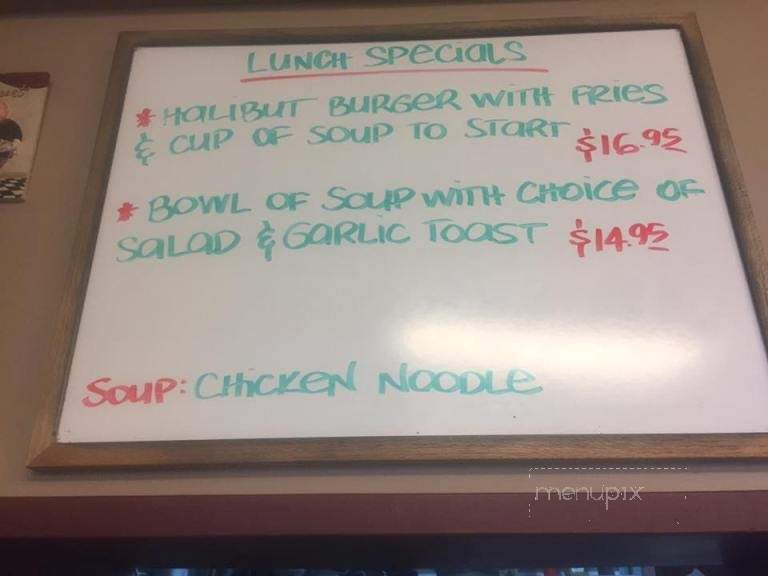 LUNCH SPECIALS
* HALIBUT BURGER WITH FRIES
& CUP OF SOUP TO START $16.95
* BOWL OF SOUP WITH CHOICE OF
SALAD & GARLIC TOAST $14.95
SOUP: CHICKEN NOODLE
menupix